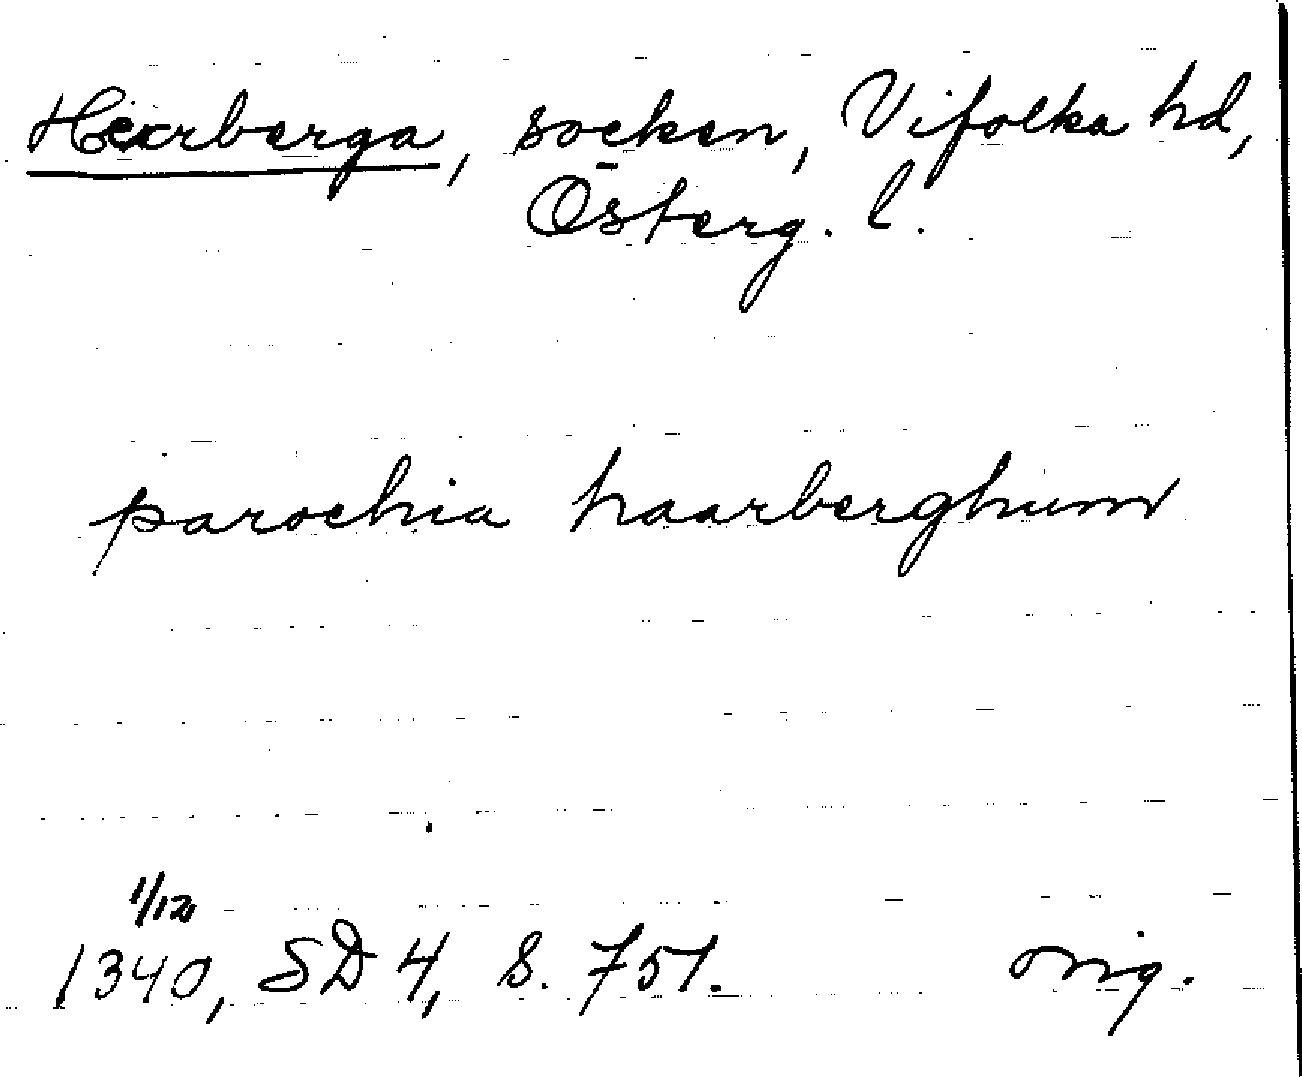 Herrberga, socken, Vifolka hd,
Österg. l.
parochia haarberghum
1/12
1340, SD 4, s. 751. orig.